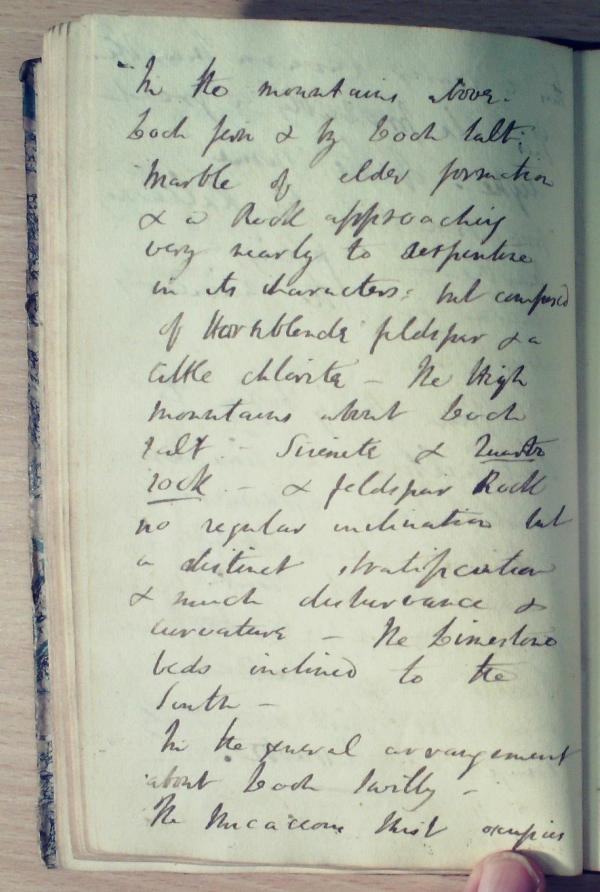 In the mountains above.
Loch fern & by Loch Salt:
marble of older formation
& a Rock approaching
very nearly to serpentine
in its characters: but composed
of Hornblende feldspar & a
little chlorite – The High
mountains about Loch
Salt – Sienite & Quartz
rock – & feldspar Rock
no regular inclination but
a distinct stratification
& much disturbance &
curvature – The Limestone
beds inclined to the
South –
In the general arrangement
about Loch Swilly –
The micaceous shist occupies